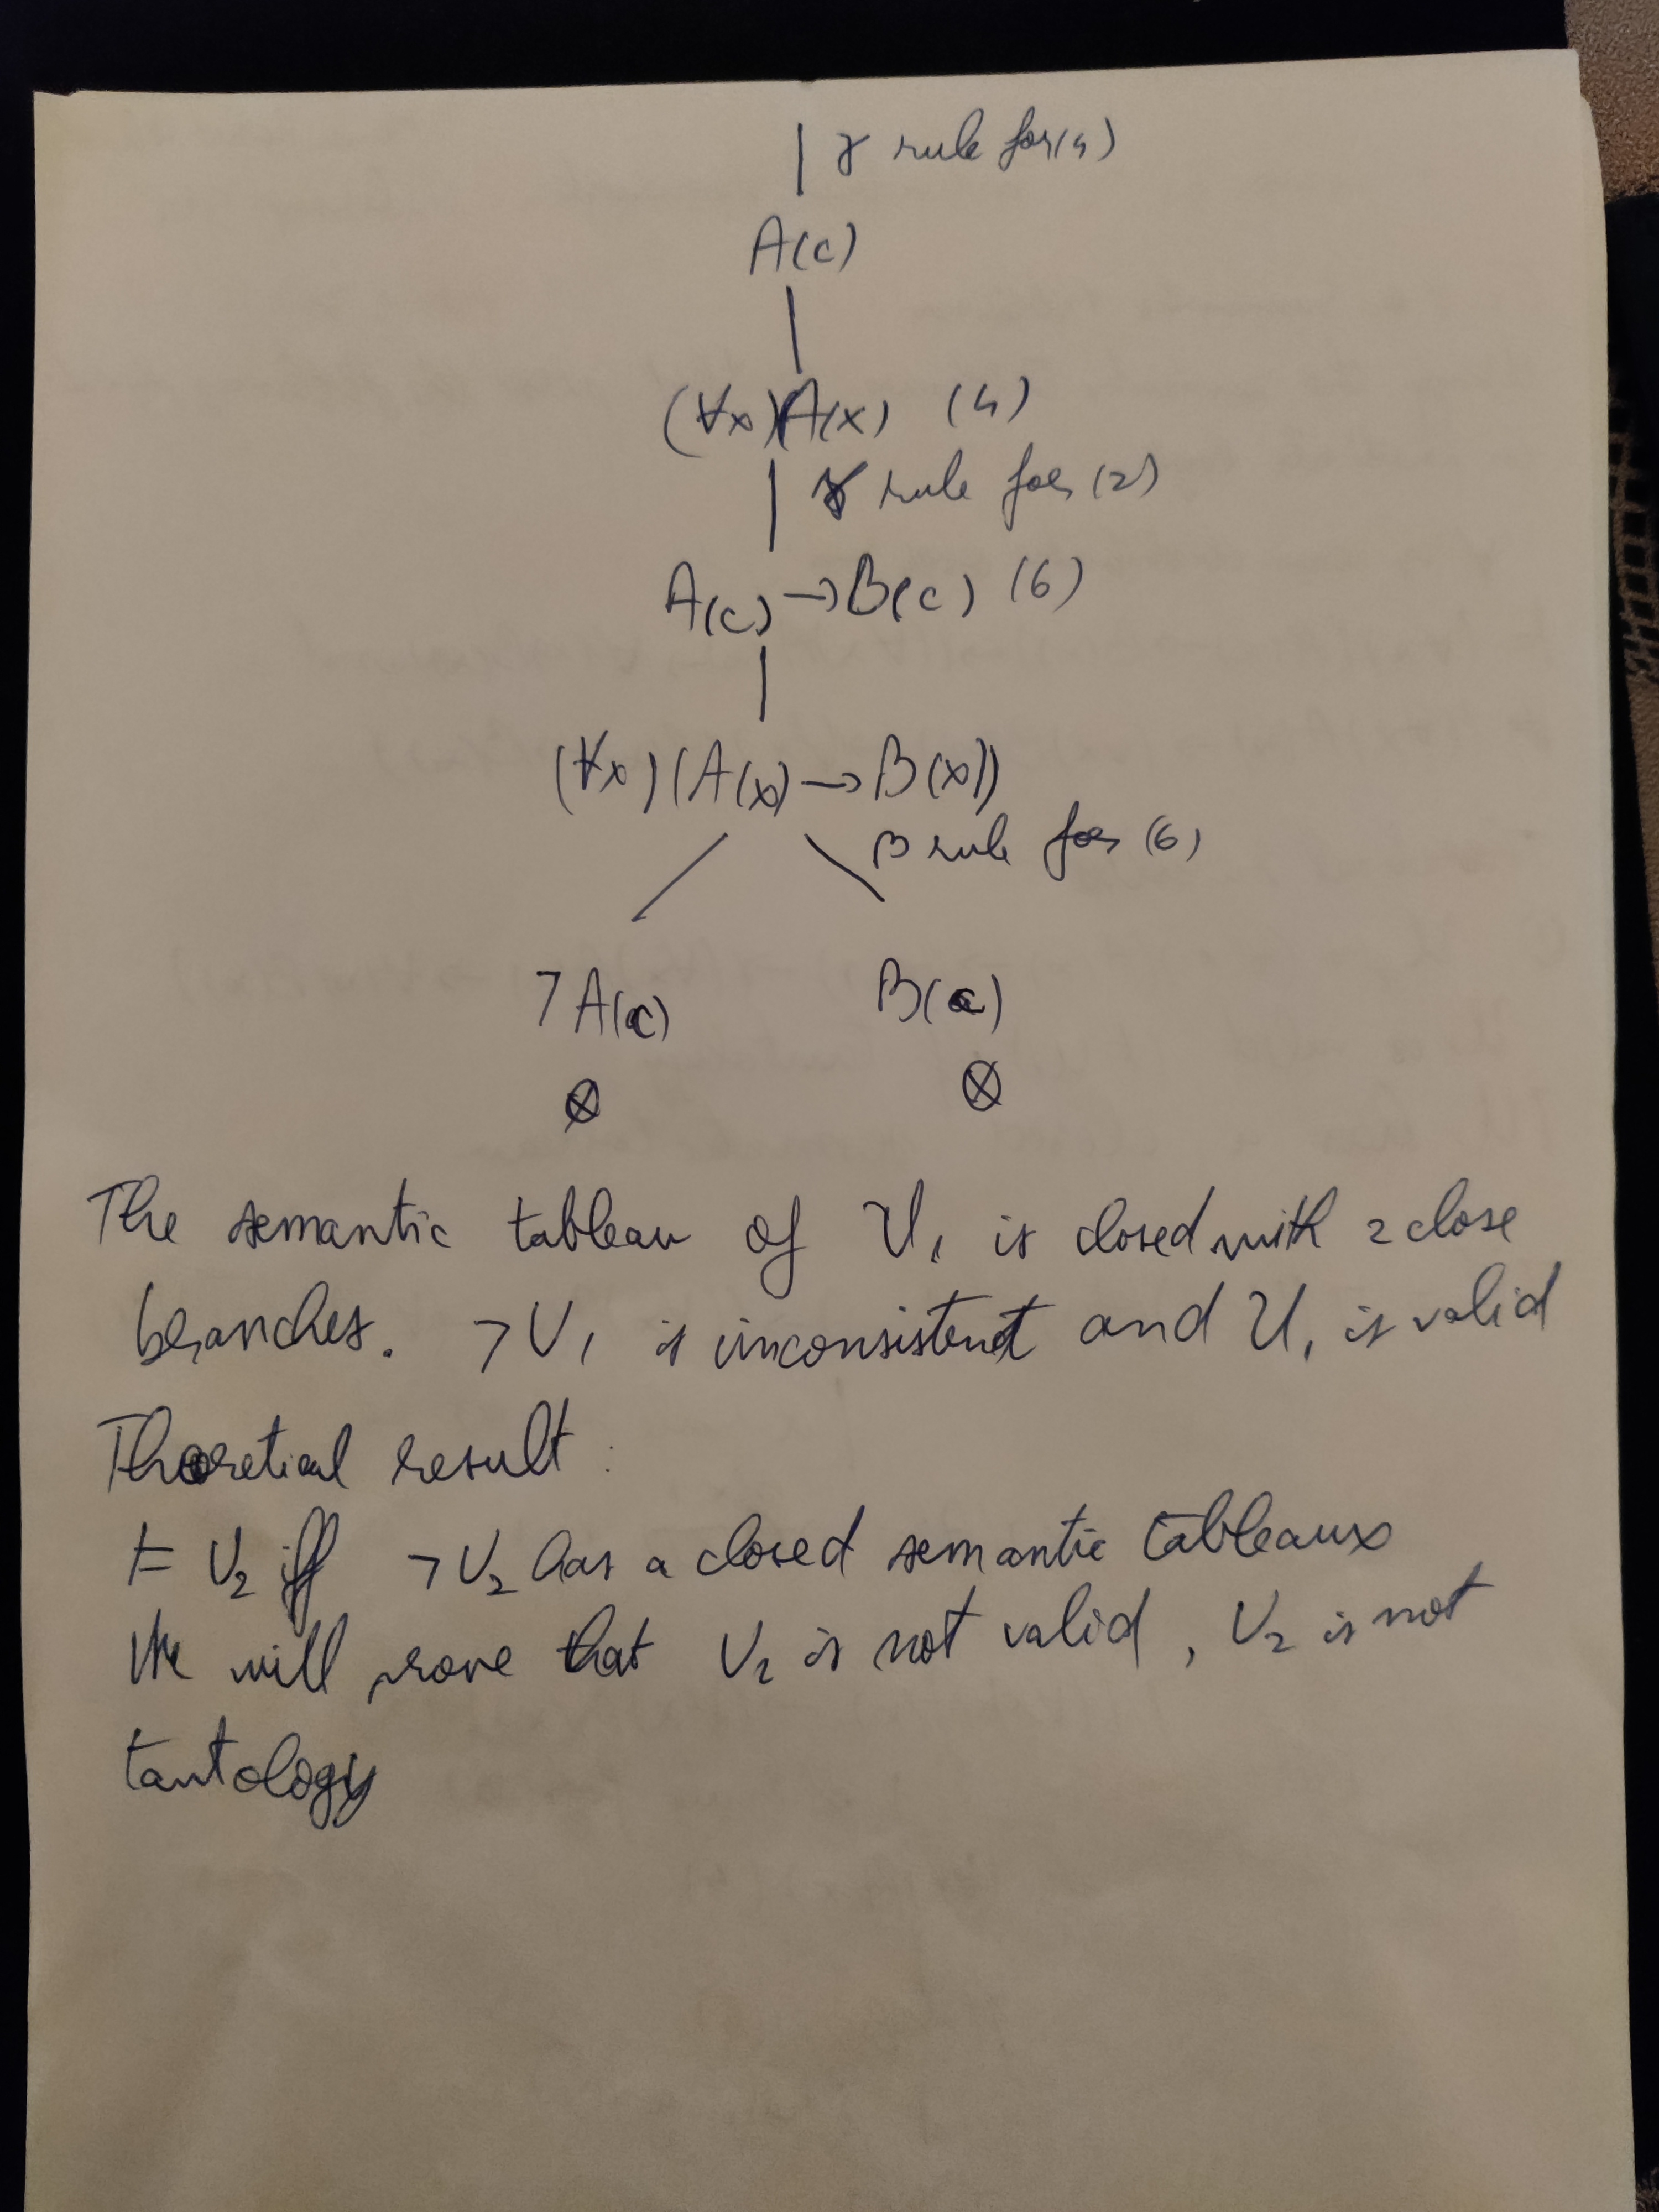 γ rule for (4)
A(c)
(∀x)A(x) (4)
γ rule for (2)
A(c)→B(c) (6)
(∀x)(A(x)→B(x))
β rule for (6)
¬A(c) B(c)
⊗ ⊗
The semantic tableau of U₁ is closed with 2 close
branches. ¬U₁ is inconsistent and U₁ is valid
Theoretical result:
⊨ U₂ iff ¬U₂ has a closed semantic tableaux
We will prove that U₂ is not valid, U₂ is not
tautology